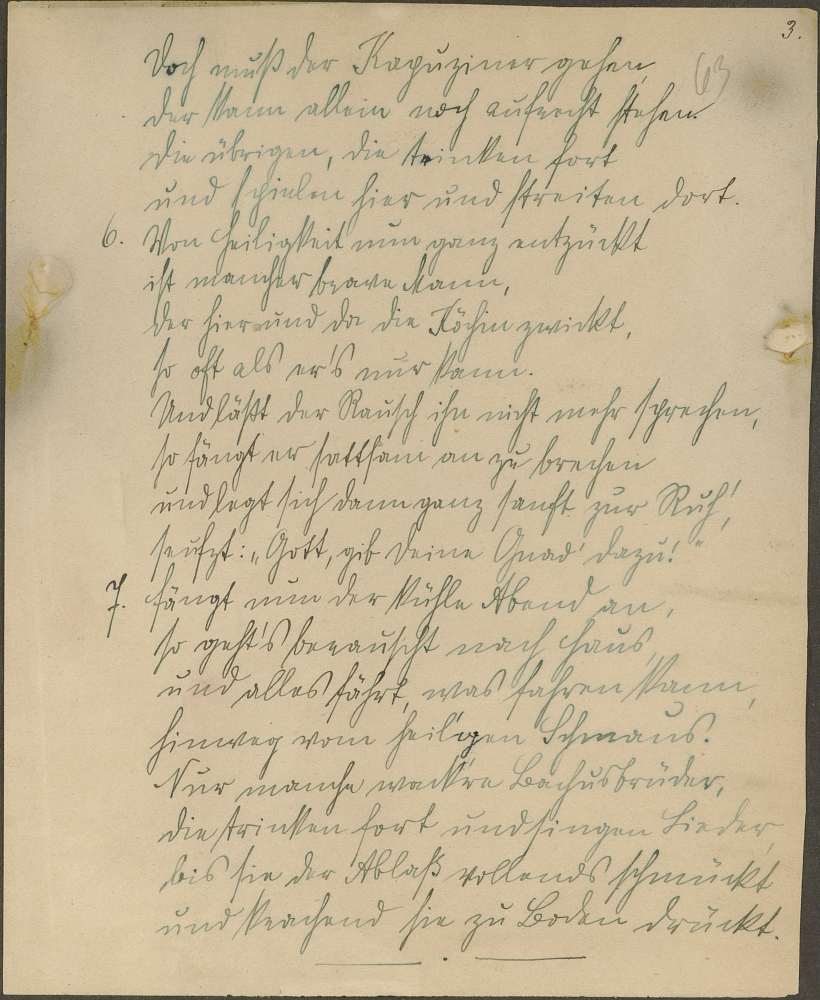 3.
63
Doch muß der Kapuziner gehen,
der kann allein noch aufrecht stehen.
Die übrigen, die trinken fort
und spielen hier und streiten dort.
6. Von Heiligkeit nun ganz entzückt
ist mancher brave Mann,
der hier und da die Köchin zwickt,
so oft als er's nur kann.
Und läßt der Rausch ihn nicht mehr sprechen,
so fängt er sattsam an zu brechen
und legt sich dann ganz sanft zur Ruh',
seufzt: „Gott, gib deine Gnad' dazu!"
7. Fängt nun der kühle Abend an,
so geht's berauscht nach Haus,
und alles fährt, was fahren kann,
hinweg vom heil'gen Schmaus.
Nur manche wack're Bachusbrüder,
die trinken fort und singen Lieder,
bis sie der Ablaß vollends schmückt
und krachend sie zu Boden drückt.